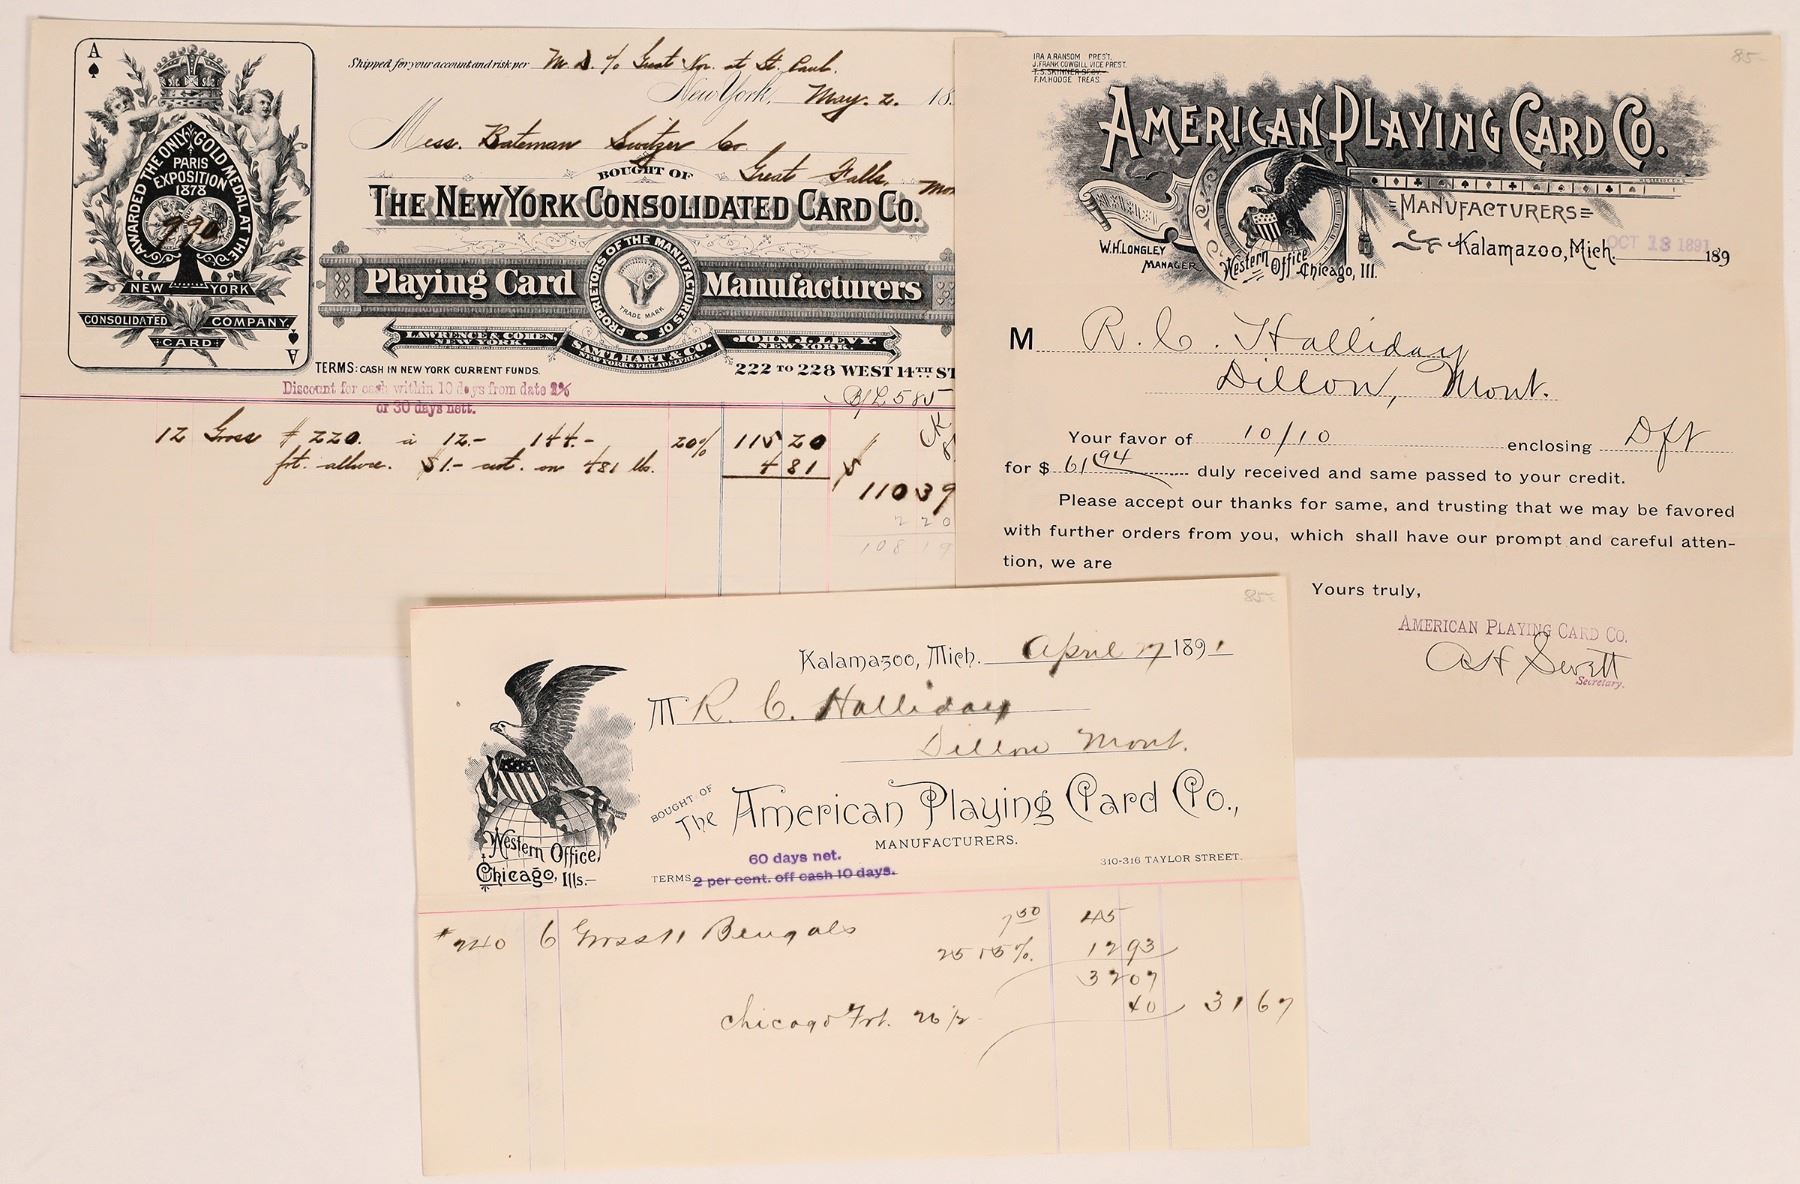 A
AWARDED THE ONLY GOLD MEDAL AT THE
PARIS
EXPOSITION
1878
990
NEW YORK
CONSOLIDATED COMPANY.
CARD
A
Shipped for your account and risk per M. D. % Great Nor. at St. Paul.
New York, May. 2. 18
Mess. Bateman Switzer Co
BOUGHT OF Great Falls,
THE NEW YORK CONSOLIDATED CARD CO.
Playing Card Manufacturers
PROPRIETORS OF THE MANUFACTURES OF
TRADE MARK
LAWRENCE & COHEN,
NEW YORK.
SAM'L HART & CO.
NEW YORK & PHILADELPHIA
JOHN J. LEVY,
NEW YORK.
TERMS: CASH IN NEW YORK CURRENT FUNDS.
222 TO 228 WEST 14TH ST
Discount for cash within 10 days from date 2%
or 30 days nett.
B/L 585
CK
12 Gross # 220. à 12.- 144.- 20% 115 20
frt. allwce. $1.- cwt. on 481 lbs. 4 81 $
110 39
2 20
108 19
IRA A. RANSOM PREST.
J. FRANK COWGILL VICE PREST.
T. S. SKINNER SECY.
F. M. HODGE TREAS.
85-
AMERICAN PLAYING CARD CO.
MANUFACTURERS
W. H. LONGLEY
MANAGER
Western Office Chicago, Ill.
Kalamazoo, Mich. OCT 13 1891 189
M R. C. Halliday
Dillon, Mont.
Your favor of 10/10 enclosing Dft
for $ 61 94 duly received and same passed to your credit.
Please accept our thanks for same, and trusting that we may be favored
with further orders from you, which shall have our prompt and careful atten-
tion, we are
Yours truly,
AMERICAN PLAYING CARD CO.
Secretary.
85-
Kalamazoo, Mich. April 27 1891
M R. C. Halliday
Dillon Mont.
BOUGHT OF
The American Playing Card Co.,
MANUFACTURERS.
Western Office,
Chicago, Ills.
310-316 TAYLOR STREET.
60 days net.
TERMS 2 per cent. off cash 10 days.
#240 6 Gross Bengals 7 50 45
25 15%. 12 93
32 07
Chicago Frt. 40 31 67